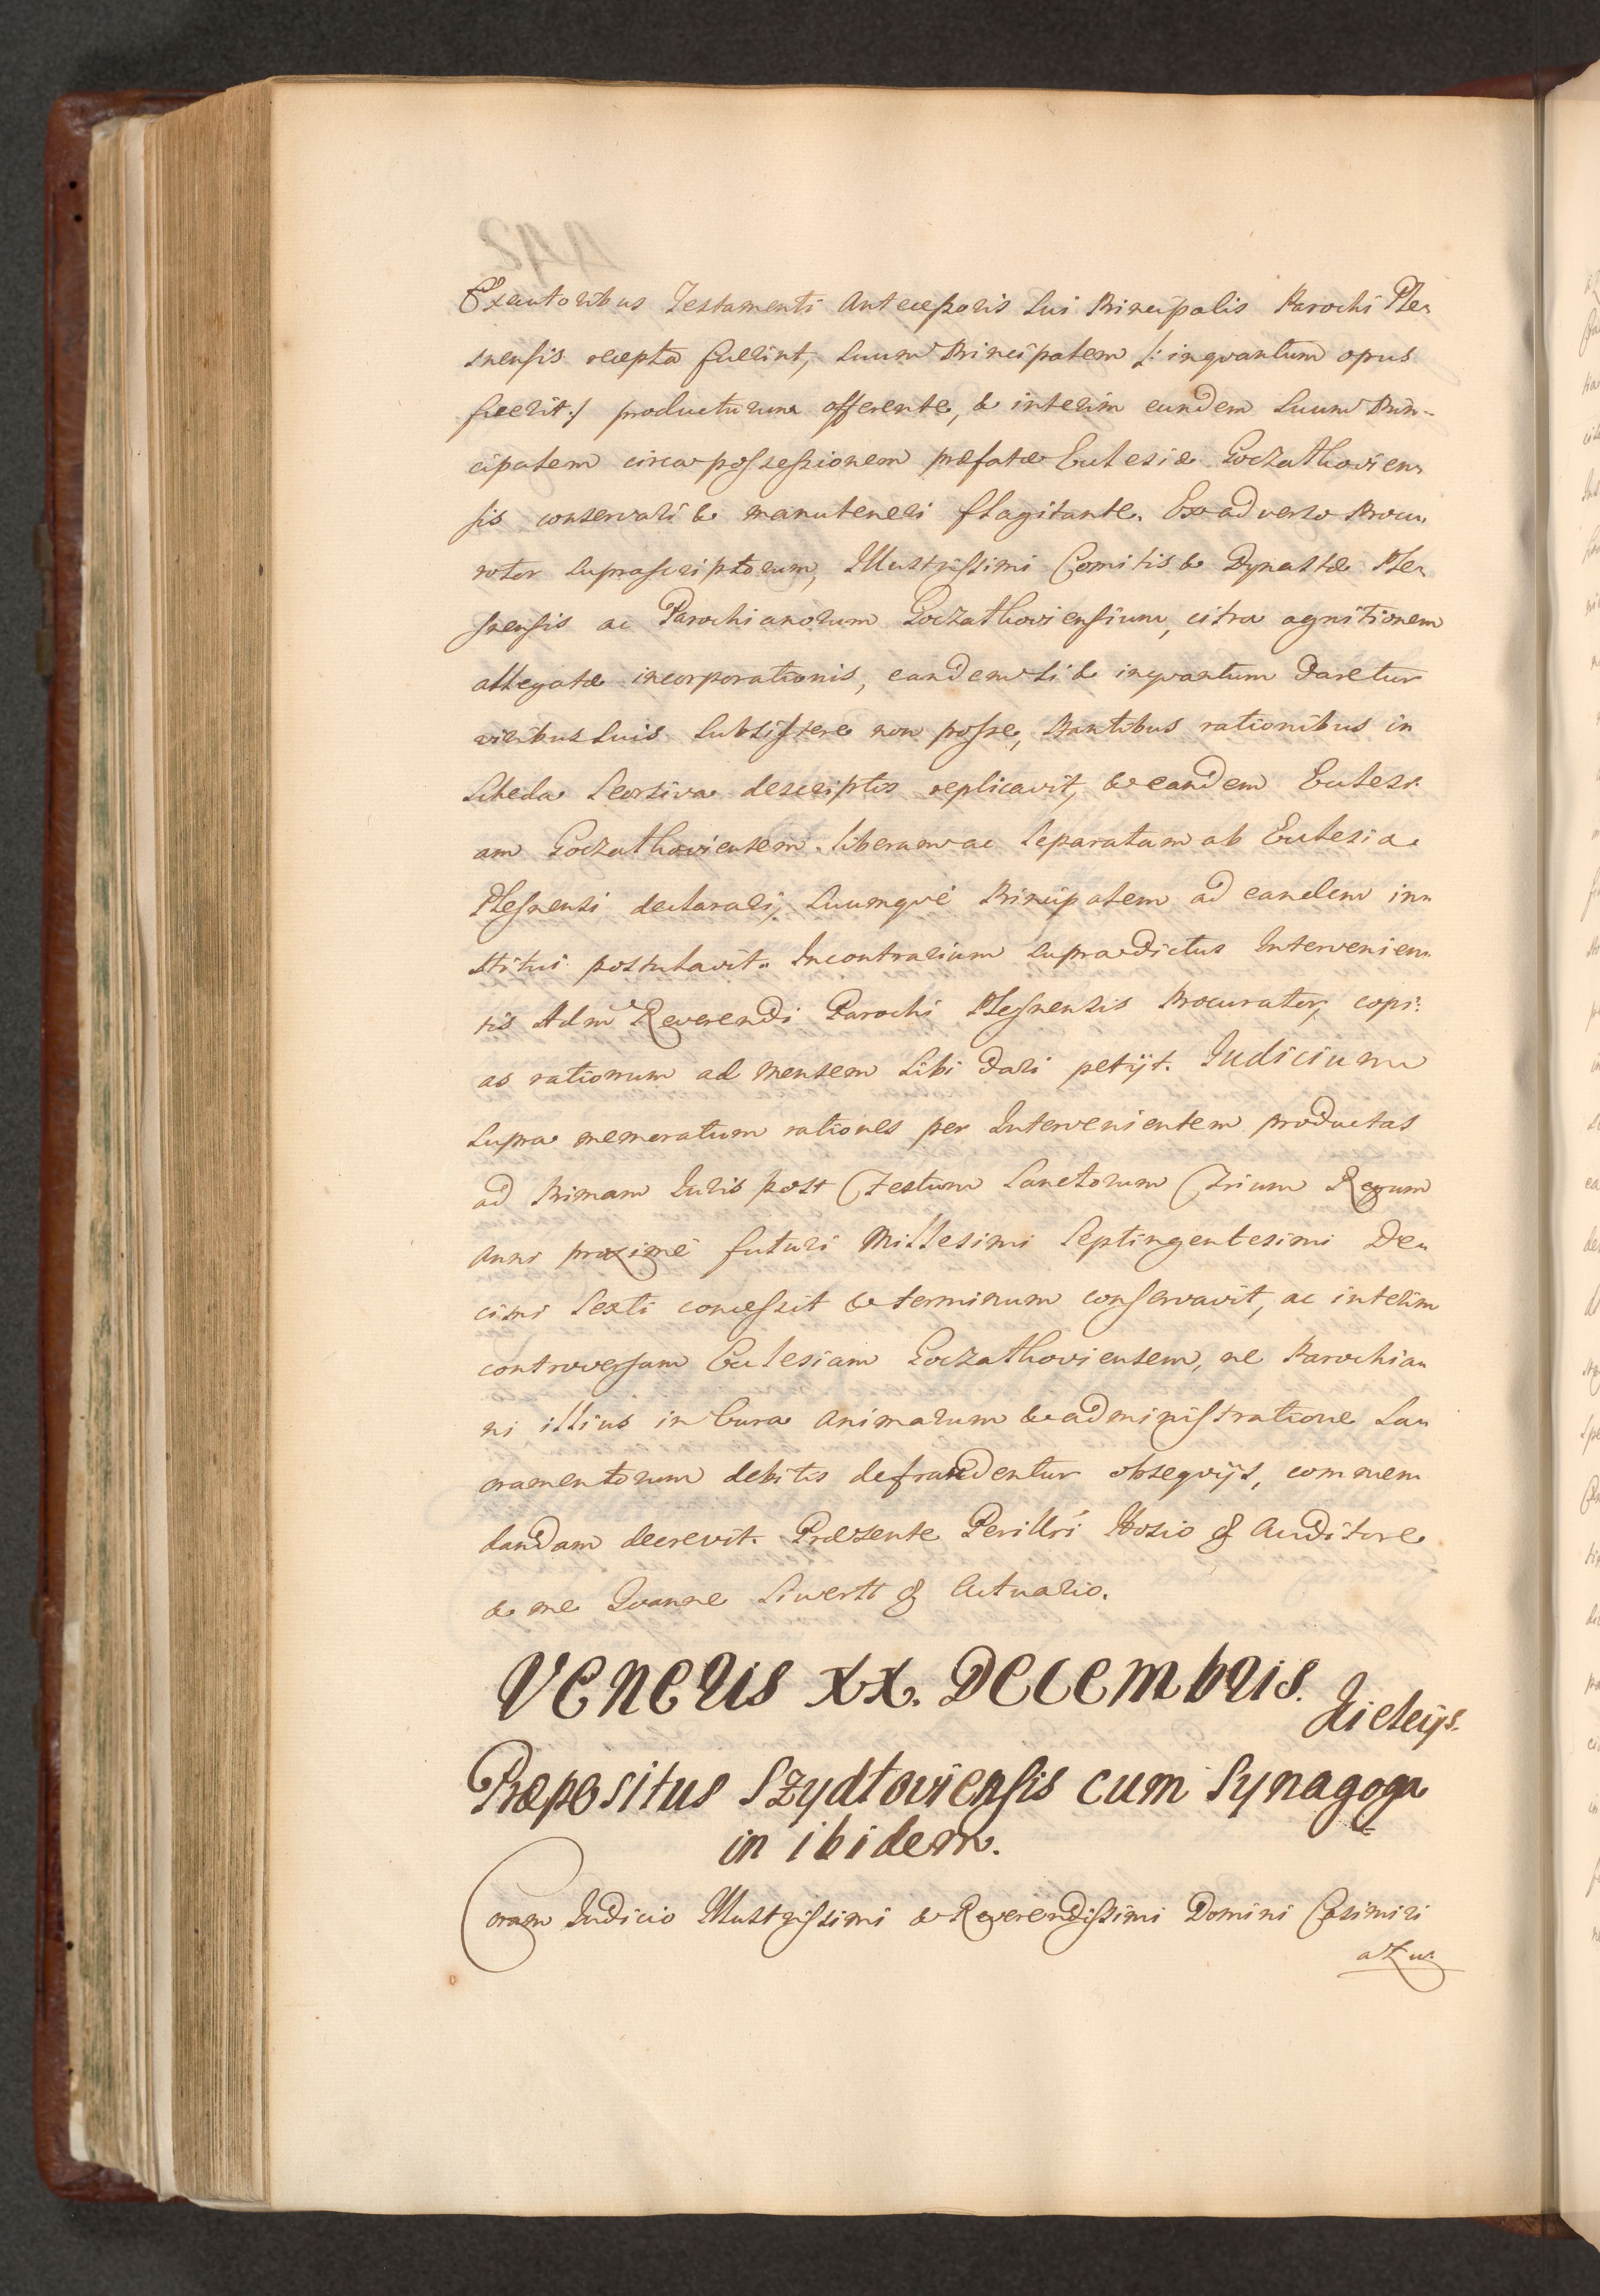 Exeutoribus Testamenti Antecessoris Sui Principalis Parochi Ples-
snensis recepta fuerint, Suum Principalem /: inqvantum opus
fuerit:/ producturum offerente, & interim eundem Suum Prin-
cipalem circa possessionem præfatæ Ecclesiæ Goczalkovien-
sis conservari & manuteneri flagitante. Ex adverso Procu-
rator suprascriptorum, Illustrissimi Comitis & Dynastæ Ples-
snensis ac Parochianorum Goczalkoviensium, citra agnitionem
allegatæ incorporationis, eandem si & inqvantum daretur
viribus suis subsistere non posse, stantibus rationibus in
Scheda Seorsiva descriptis replicavit, & eandem Eclesi-
am Goczalkoviensem liberam ac Separatam ab Eclesia
Plesnensi declarari, Suumqve Principalem ad eandem in-
stitui postulavit. Incontrarium supradictus Intervenien-
tis Adm Reverendi Parochi Plesnensis Procurator, copi-
as rationum ad mensem sibi dari petijt. Judicium
supra memoratum rationes per Intervenientem productas
ad Primam Iuris post Festum Sanctorum Trium Regum
Anni proximè futuri Millesimi Septingentesimi De-
cimi Sexti concessit & terminum conservavit, ac interim
controversam Eclesiam Goczalkoviensem, ne Parochia-
ni illius in Cura Animarum & administratione Sa-
cramentorum debitis defraudentur obseqvijs, commen
dandam decrevit. Præsente Perillri Hosio & Auditore
& me Joanne Siwertt & Actuario.
Veneris XX. Decembris.
Præpositus Szydloviensis cum Synagoga
in ibidem.
Coram Judicio Illustrissimi & Reverendissimi Domini Casimiri